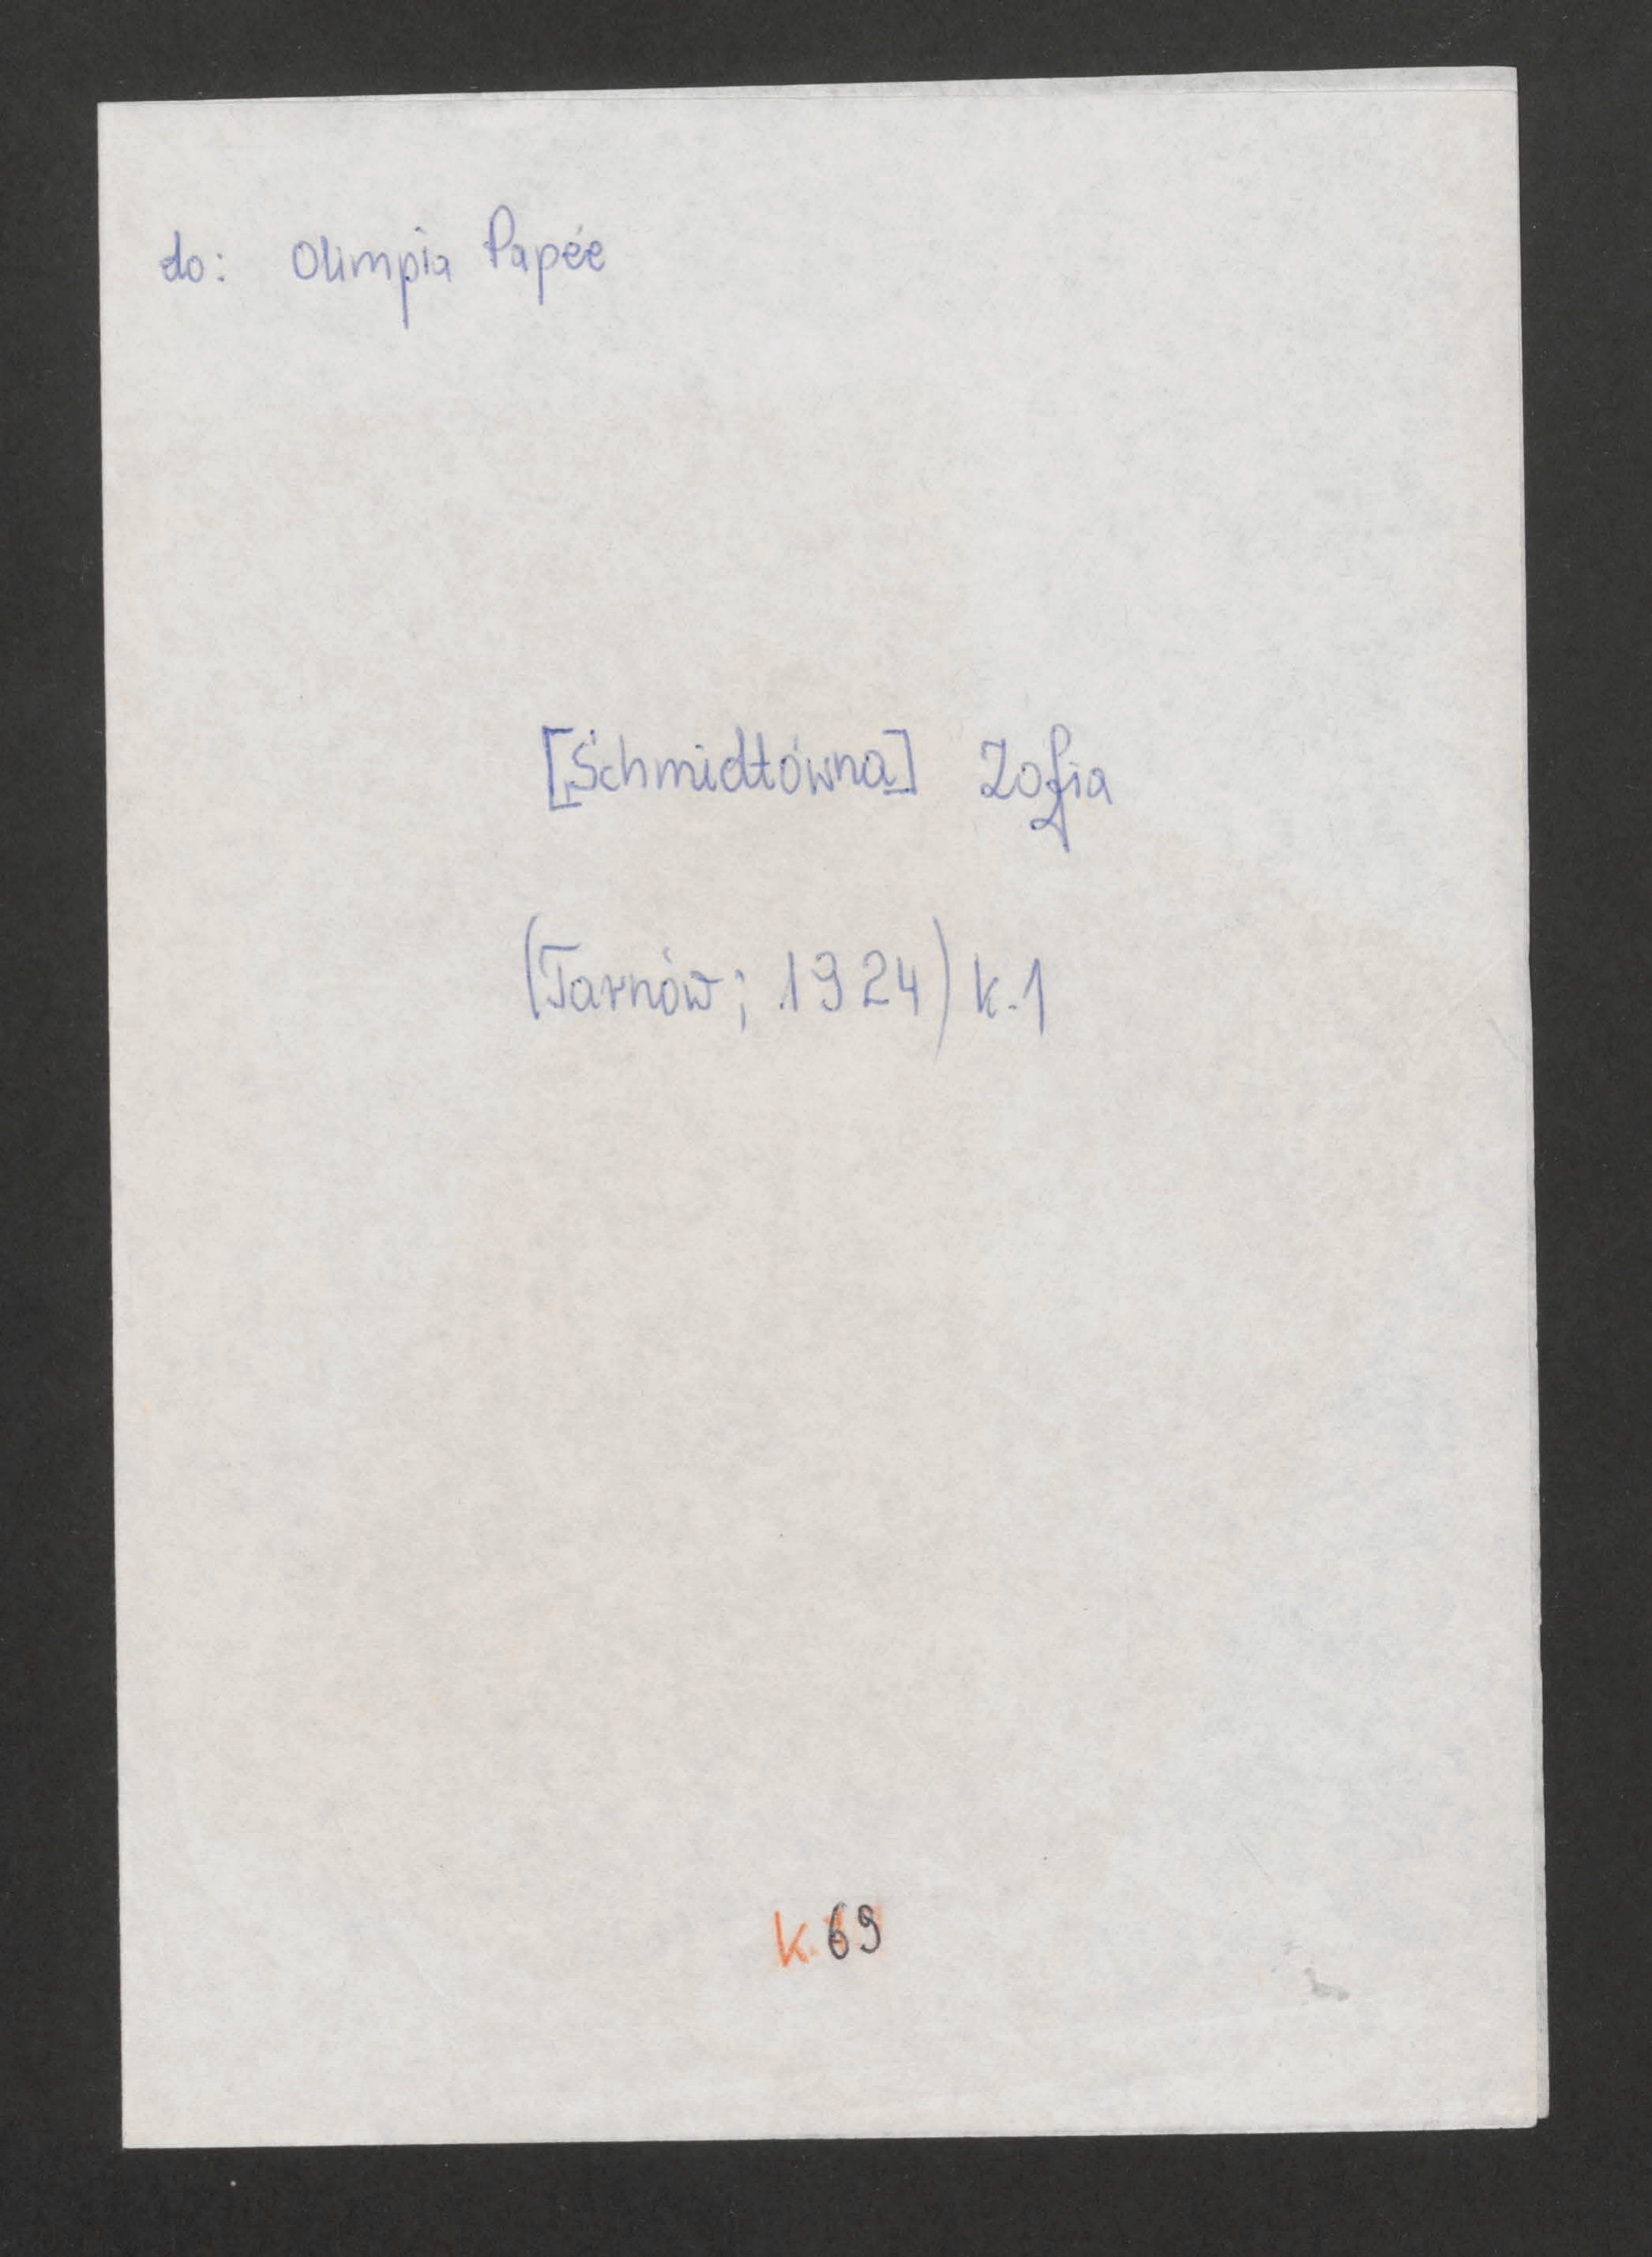 do: Olimpia Papée
[Schmidtówna] Zofia
(Tarnów; 1924) k.1
k. 69